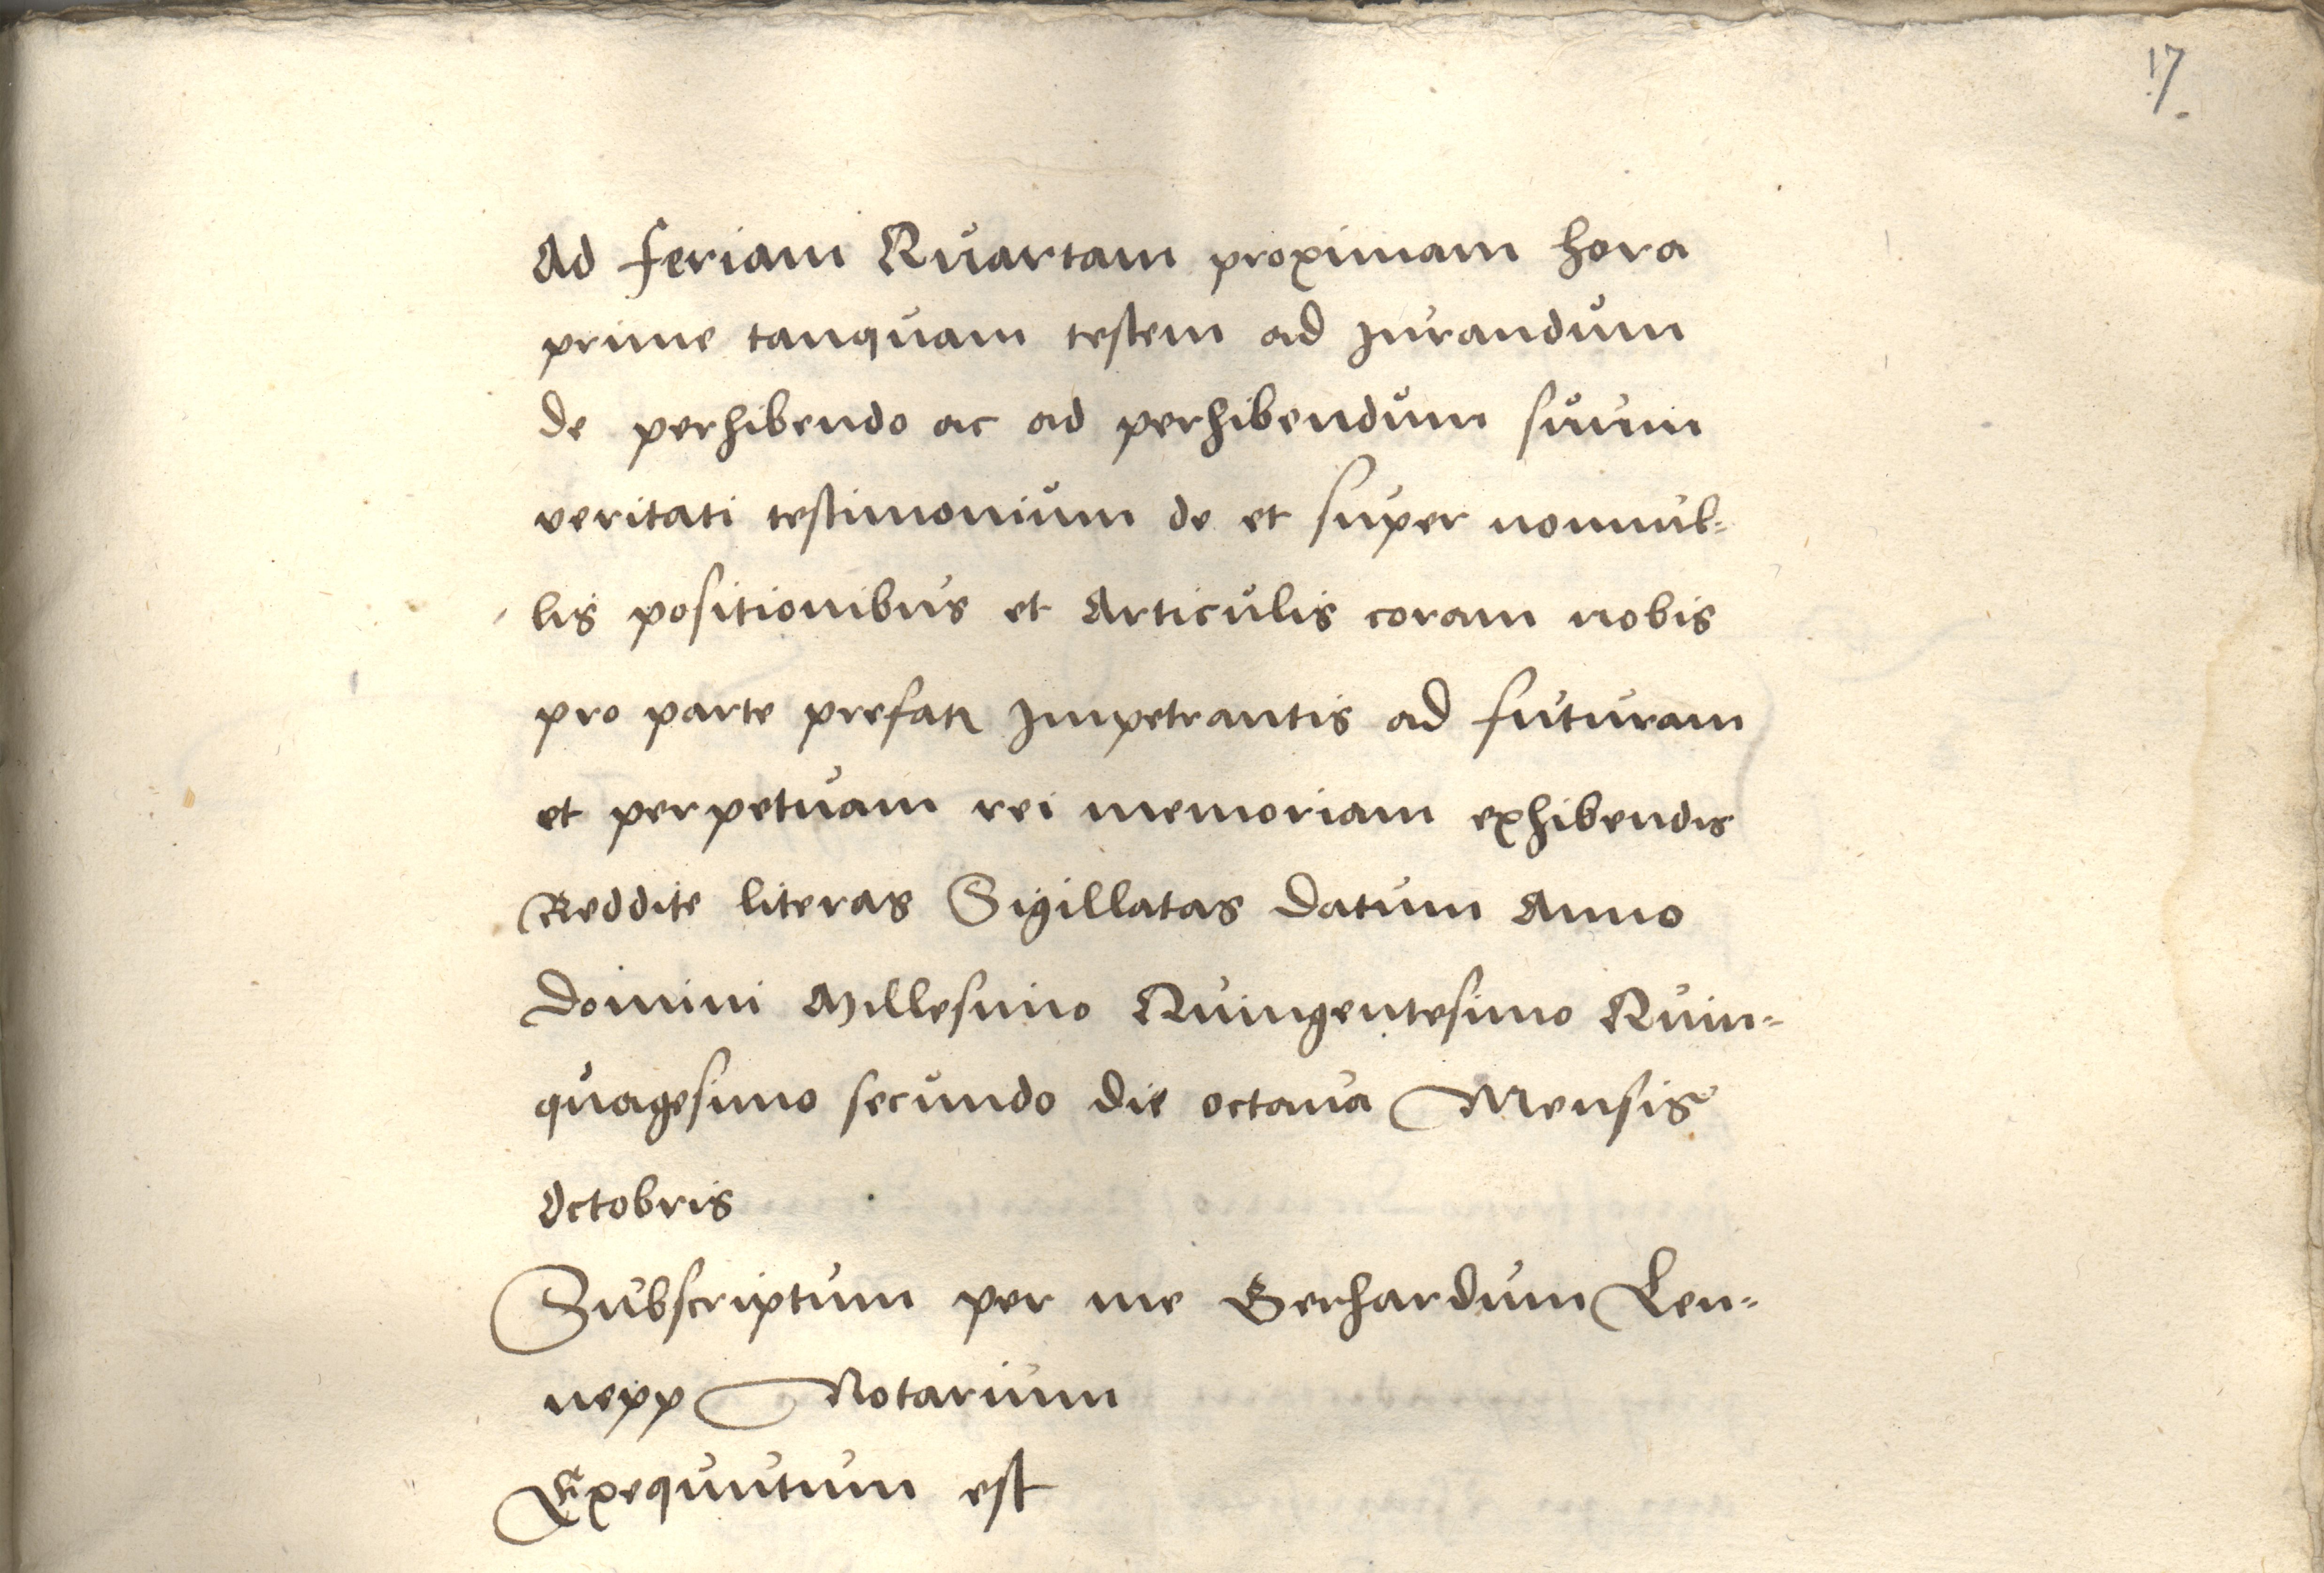 17.
Ad feriam Quartam proximam hora
prime tanquam testem ad Jurandum
de perhibendo ac ad perhibendum suum
veritati testimonium de et super nonnul-
lis positionibus et Articulis coram nobis
pro parte prefati Impetrantis ad futuram
et perpetuam rei memoriam exhibendis
Reddite literas Sigillatas Datum Anno
Domini Millesimo Quingentesimo Quin-
quagesimo secundo die octava Mensis
Octobris
Subscriptum per me Gerhardum Len-
nepp Notarium
Exequutum est